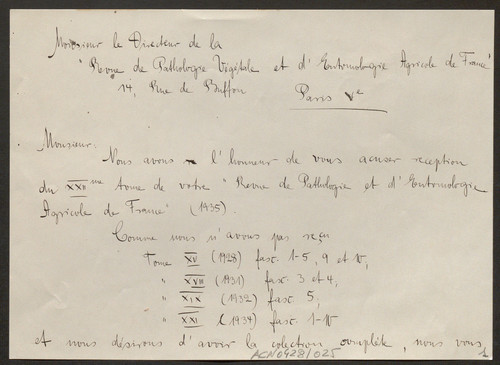 Monsieur le Directeur de la
"Revue de Pathologie Végétale et d'Entomologie Agricole de France"
14, Rue de Buffon Paris Ve
Monsieur:
Nous avons l'honneur de vous acuser reception
du XXIIme tome de votre "Revue de Pathologie et d'Entomologie
Agricole de France" (1935).
Comme nous n'avons pas reçu
Tome XV (1928) fasc. 1-5, 9 et 10,
" XVIII (1931) fasc. 3 et 4,
" XIX (1932) fasc 5,
" XXI (1934) fasc. 1-10
et nous désirons d'avoir la colection complète, nous vous
ACN0428/025
1